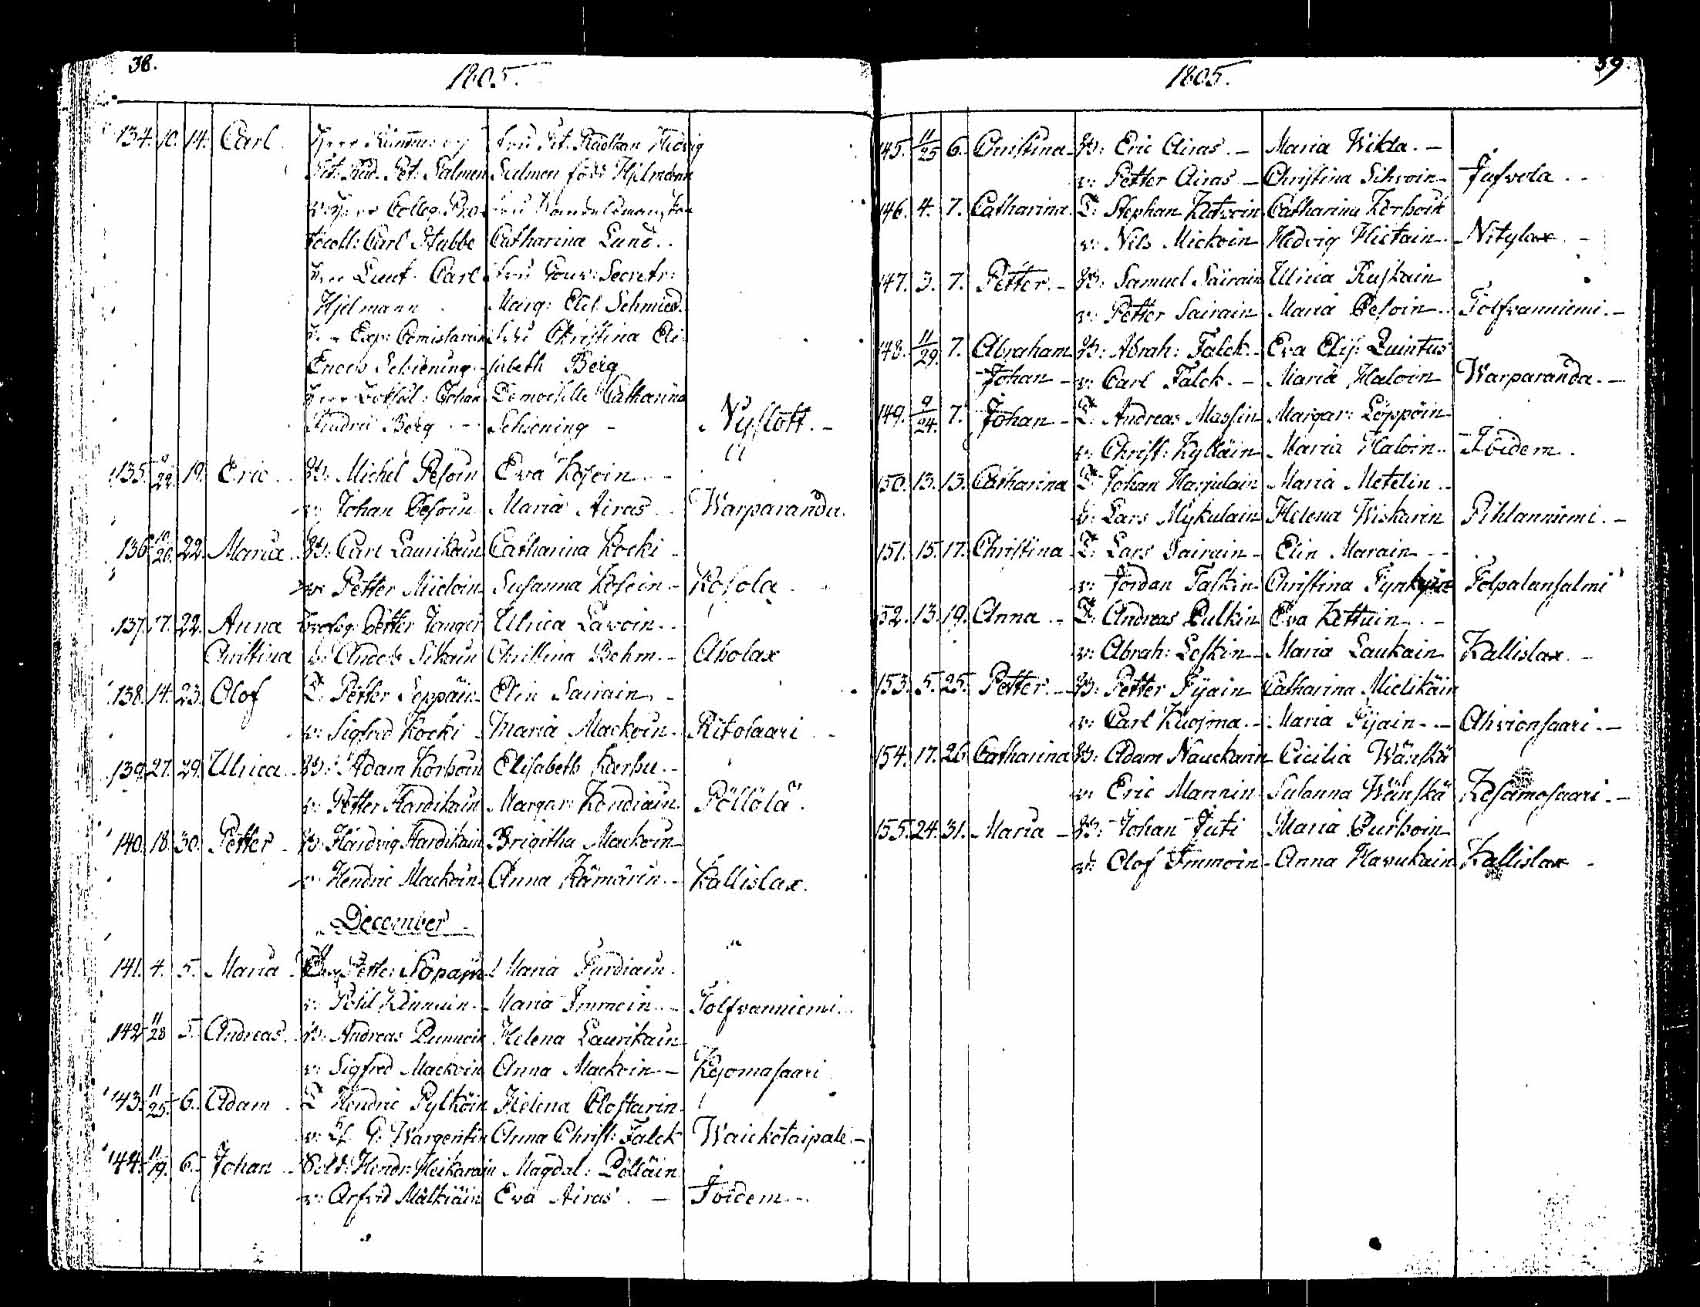 38.
1805.
134. 10. 14. Carl. Herr
Pet. Salmen Salmen född Hjelmann
Herr Colleg. Pro-
tocoll: Carl Stubbe Catharina Lund.
Herr Lieut. Carl Fru Gouv: Secretr:
Hjelmann Marg: Elis. Schmied.
Exp: Comissarien Christina Eli-
Schiening. sabeth Berg
Herr Johan Demoiselle Catharina
Berg Schiening Nyslott.
135. 19. Eric B: Michel Pesoin Eva Kosoin
v: Johan Pesoin Maria Airas Warparanda.
136. 22. Maria B: Carl Laurikain Catharina Kocki
v: Petter Susanna Kosoin Kosola
137. 17. 22. Anna Petter Ulrica Lavoin
Christina v: Anders Sikain Christina Bohm. Aholax
138. 14. 23. Olof T. Petter Seppäin Elin Sairain
v: Sigfred Kocki Maria Mackoin Ritosaari
139. 27. 29. Ulrica B: Adam Korhoin Elisabeth Karhu
v: Petter Hardikain Margar: Kondiain Pöllölä
140. 18. 30. Petter B: Hardikain Brigitha Mackoin
v: Hendric Mackoin Anna Kämärin Kallislax.
December
141. 4. 5. Maria Petter Nopain Maria Turdiain
v: Maria Immoin Tolfvanniemi
142. 11/28 5. Andreas B: Andreas Punnoin Helena Laurikain
v: Sigfred Mackoin Anna Mackoin Kesomasaari
143. 11/25. 6. Adam T Hendric Pylköin Helena Clostarin
v: G: Wargentin Anna Christ: Falck Waickotaipale
144. 11/19. 6. Johan Sold: Hendr: Heikarain Magdal: Pölläin
v: Arfvid Malkiäin Eva Airas Ibidem
39
1805.
145. 11/25 6. Christina B: Eric Airas. Maria Wikla.
v: Petter Airas Christina Silvoin Jufvola
146. 4. 7. Catharina T: Stephan Katvoin Catharina Korhoin
v: Nils Mickoin Hedvig Hietain Nitylax
147. 3. 7. Petter. B: Samuel Sairain Ulrica Ruskain
v: Petter Sairain Maria Pesoin Tolfvanniemi.
148. 11/29. 7. Abraham B: Abrah: Falck. Eva Elis: Quintus
Johan v: Carl Falck. Maria Haloin Warparanda.
149. 9/24. 7. Johan T. Andreas Massin Margar: Leppöin
v: Christ: Kylläin Maria Haloin Ibidem.
150. 13. 13. Catharina T Johan Harjulain Maria Metelin
v: Lars Mykulain Helena Wiskarin Pihlanniemi.
151. 15. 17. Christina T: Lars Sairain Elin Marain
v: Jordan Taskin Christina Tynkyin Tolpalansalmi
152. 13. 19. Anna T: Andreas Pulkin Eva Kettuin
v: Abrah: Loskin Maria Laukain Kallislax.
153. 5. 25. Petter. B: Petter Tijain Catharina Mielikäin
v: Carl Kuosma. Maria Tijain Ahvionsaari
154. 17. 26 Catharina B: Adam Nauckarin Cicilia Wänskä
v: Eric Mannin Susanna Wänskä Kesamosaari.
155. 24. 31. Maria B: Johan Juti Maria Purhoin
v: Olof Immoin Anna Havukain Kallislax